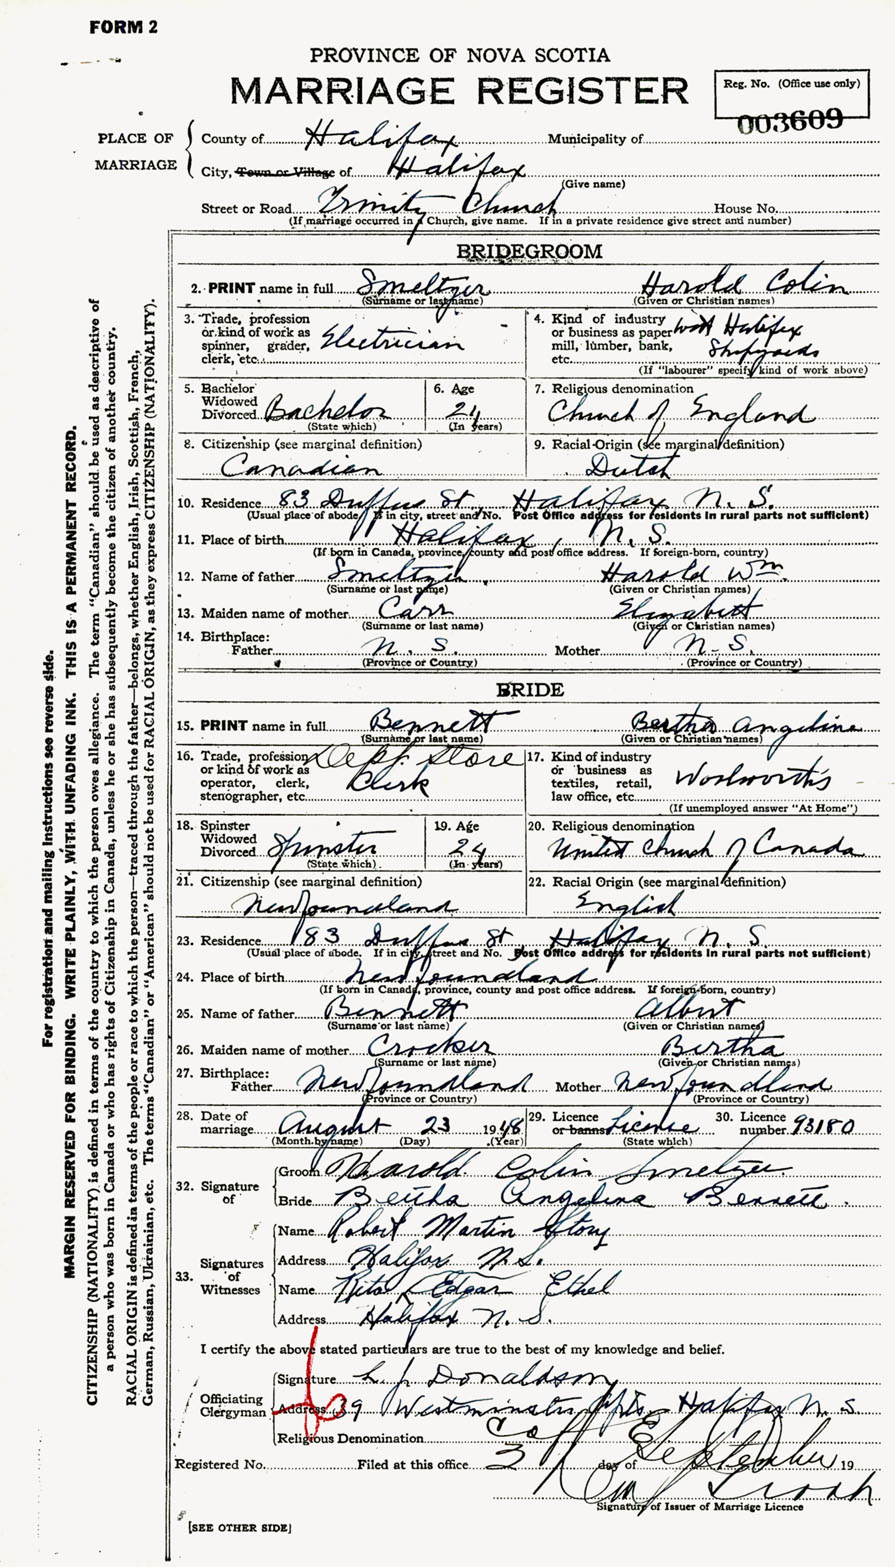 FORM 2
PROVINCE OF NOVA SCOTIA
MARRIAGE REGISTER
Reg. No. (Office use only)
003609
PLACE OF MARRIAGE
County of Halifax Municipality of
City, Town or Village of Halifax
(Give name)
Street or Road Trinity Church House No.
(If marriage occurred in a Church, give name. If in a private residence give street and number)
BRIDEGROOM
2. PRINT name in full Smeltzer Harold Colin
(Surname or last name) (Given or Christian names)
3. Trade, profession or kind of work as spinner, grader, clerk, etc. Electrician
4. Kind of industry or business as paper mill, lumber, bank, etc. with Halifax Shipyards
(If "labourer" specify kind of work above)
5. Bachelor Widowed Divorced Bachelor
(State which)
6. Age
(In years)
7. Religious denomination
Church of England
8. Citizenship (see marginal definition)
Canadian
9. Racial Origin (see marginal definition)
Dutch
10. Residence 83 Duffus St. Halifax N. S.
(Usual place of abode. If in city, street and No. Post Office address for residents in rural parts not sufficient)
11. Place of birth Halifax, N. S.
(If born in Canada, province, county and post office address. If foreign-born, country)
12. Name of father Smeltzer, Harold Wm.
(Surname or last name) (Given or Christian names)
13. Maiden name of mother Carr Elizabeth
(Surname or last name) (Given or Christian names)
14. Birthplace:
Father N. S. Mother N. S.
(Province or Country) (Province or Country)
BRIDE
15. PRINT name in full Bennett Bertha Angelina
(Surname or last name) (Given or Christian names)
16. Trade, profession or kind of work as operator, clerk, stenographer, etc. Dept. Store Clerk
17. Kind of industry or business as textiles, retail, law office, etc. Woolworth's
(If unemployed answer "At Home")
18. Spinster Widowed Divorced Spinster
(State which)
19. Age 24
(In years)
20. Religious denomination
United Church of Canada
21. Citizenship (see marginal definition)
Newfoundland
22. Racial Origin (see marginal definition)
English
23. Residence 183 Duffus St Halifax N. S.
(Usual place of abode. If in city, street and No. Post Office address for residents in rural parts not sufficient)
24. Place of birth Newfoundland
(If born in Canada, province, county and post office address. If foreign-born, country)
25. Name of father Bennett Albert
(Surname or last name) (Given or Christian names)
26. Maiden name of mother Crocker Bertha
(Surname or last name) (Given or Christian names)
27. Birthplace:
Father Newfoundland Mother Newfoundland
(Province or Country) (Province or Country)
28. Date of marriage August 23 1948
(Month by name) (Day) (Year)
29. Licence or banns License
(State which)
30. Licence number 93180
32. Signature of
Groom Harold Colin Smeltzer
Bride Bertha Angelina Bennett.
33. Signatures of Witnesses
Name Robert Martin Story
Address Halifax N.S.
Name Rita Edgar Ethel
Address Halifax N. S.
I certify the above stated particulars are true to the best of my knowledge and belief.
Officiating Clergyman
Signature L. J. Donaldson
Address 39 Westminster Apts. Halifax N. S.
Religious Denomination C of E
Registered No. Filed at this office 3 day of September 19
Signature of Issuer of Marriage Licence
[SEE OTHER SIDE]
For registration and mailing instructions see reverse side.
MARGIN RESERVED FOR BINDING. WRITE PLAINLY, WITH UNFADING INK. THIS IS A PERMANENT RECORD.
CITIZENSHIP (NATIONALITY) is defined in terms of the country to which the person owes allegiance. The term "Canadian" should be used as descriptive of
a person who was born in Canada or who has rights of Citizenship in Canada, unless he or she has subsequently become the citizen of another country.
RACIAL ORIGIN is defined in terms of the people or race to which the person—traced through the father—belongs, whether English, Irish, Scottish, French,
German, Russian, Ukrainian, etc. The terms "Canadian" or "American" should not be used for RACIAL ORIGIN, as they express CITIZENSHIP (NATIONALITY).